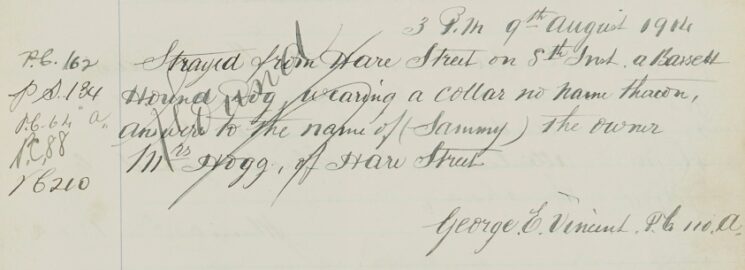 3 P.M 9th August 1914
P.C. 162
P.S. 134
P.C. 64 "A"
P.C. 88
P.C. 210
Strayed from Hare Street on 8th Inst. a Bassett
Hound Dog, wearing a collar no name thereon,
answers to the name of (Sammy) the owner
Mrs Hogg, of Hare Street
Found
George. E. Vincent. P.C 110. A.